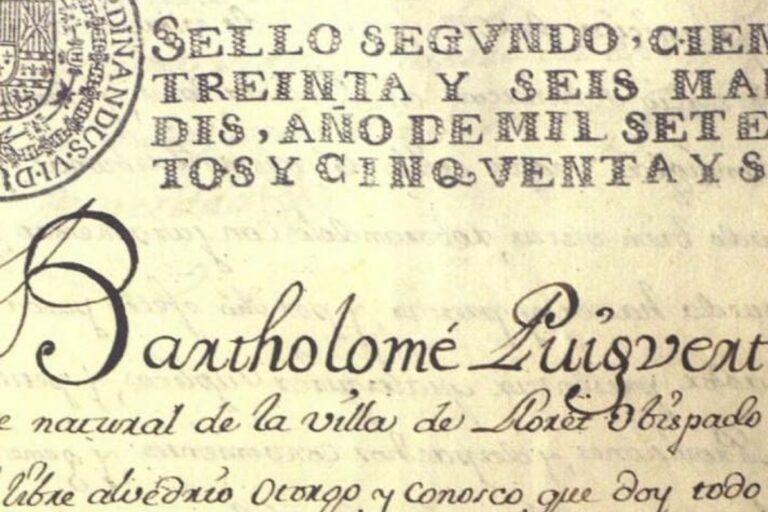 DINANDUS·VI·D
SELLO SEGVNDO, CIEN
TREINTA Y SEIS MA
DIS, AÑO DE MIL SETE
TOS Y CINQVENTA Y S
Bartholomé Puigvert
e natural de la villa de Lloret Obispado
libre alvedrio Otorgo y Conosco que doy todo